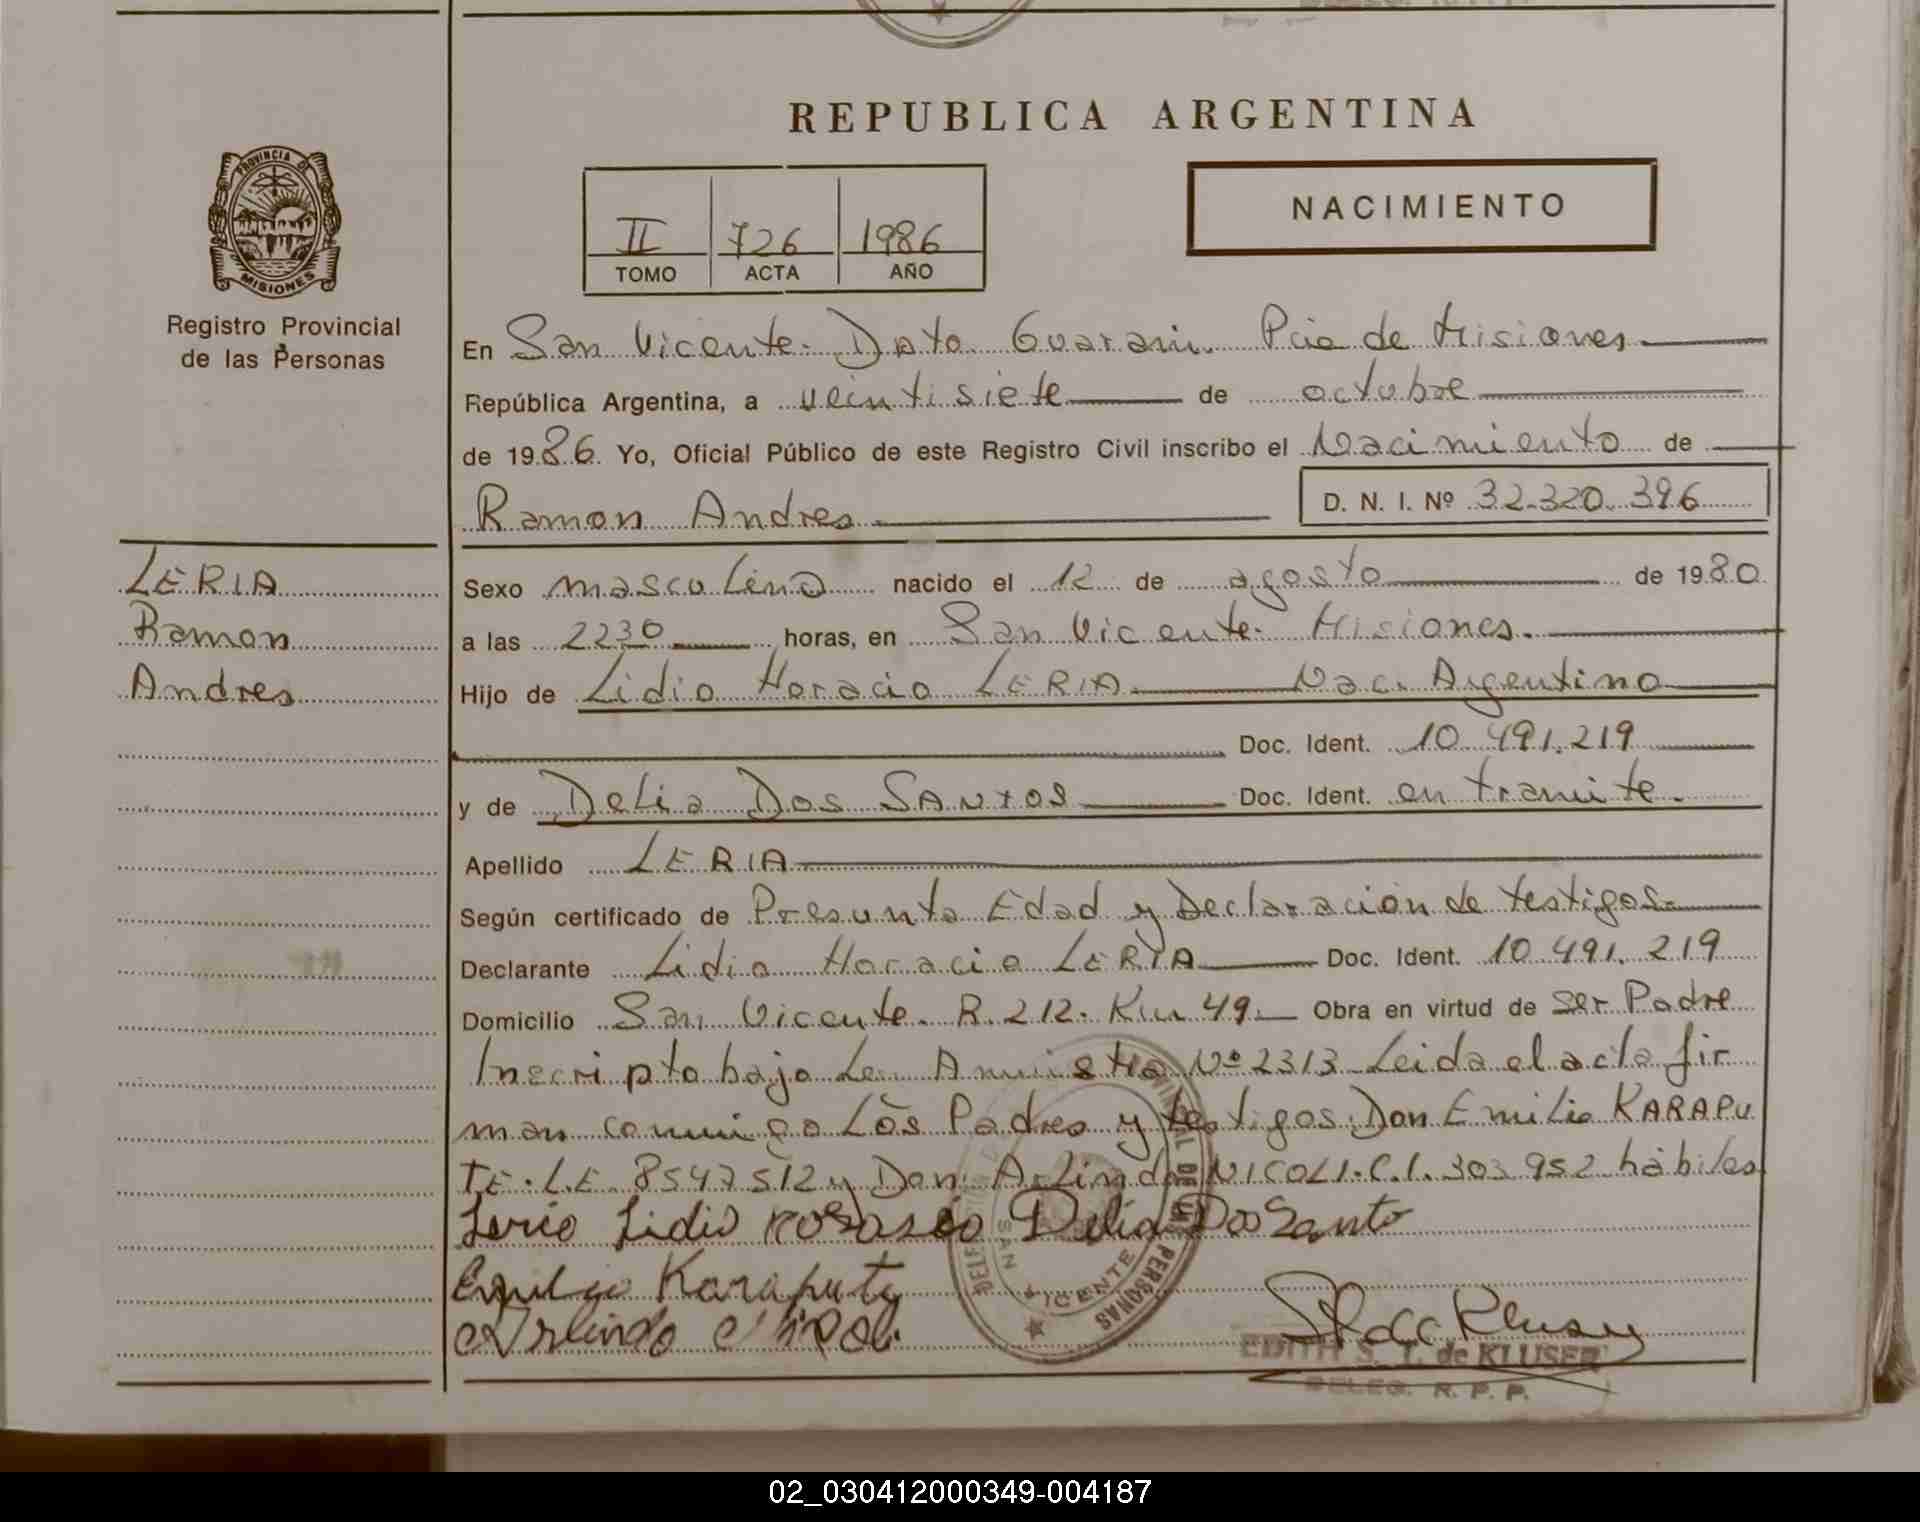 REPUBLICA ARGENTINA
PROVINCIA DE
MISIONES
Registro Provincial
de las Personas
II 726 1986
TOMO ACTA AÑO
NACIMIENTO
En San Vicente. Dpto. Guarani. Pcia de Misiones
República Argentina, a veintisiete de octubre
de 1986 Yo, Oficial Público de este Registro Civil inscribo el Nacimiento de
Ramon Andres
D. N. I. Nº 32.320.396
LERIA
Ramon
Andres
Sexo masculino nacido el 12 de agosto de 1980
a las 2230 horas, en San Vicente. Misiones.
Hijo de Lidio Horacio LERIA Nac. Argentino
Doc. Ident. 10.491.219
y de Delia Dos SANTOS Doc. Ident. en tramite.
Apellido LERIA
Según certificado de Presunta Edad y Declaración de testigos.
Declarante Lidio Horacio LERIA Doc. Ident. 10.491.219
Domicilio San Vicente. R. 212. Km 49. Obra en virtud de ser Padre
Inscripto bajo Ley Amnistia Nº 2313 Leida el acta fir
man conmigo Los Padres y testigos Don Emilio KARAPU
TE. L.E. 8547512 y Don Arlindo NICOLI. C.I. 303952 hábiles
Lidio Delia Dos Santo
Karaputa
Arlindo
SAN VICENTE
PROVINCIAL DE LAS PERSONAS
EDITH S. T. de KLUSER
DELEG. R. P. P.
02_030412000349-004187